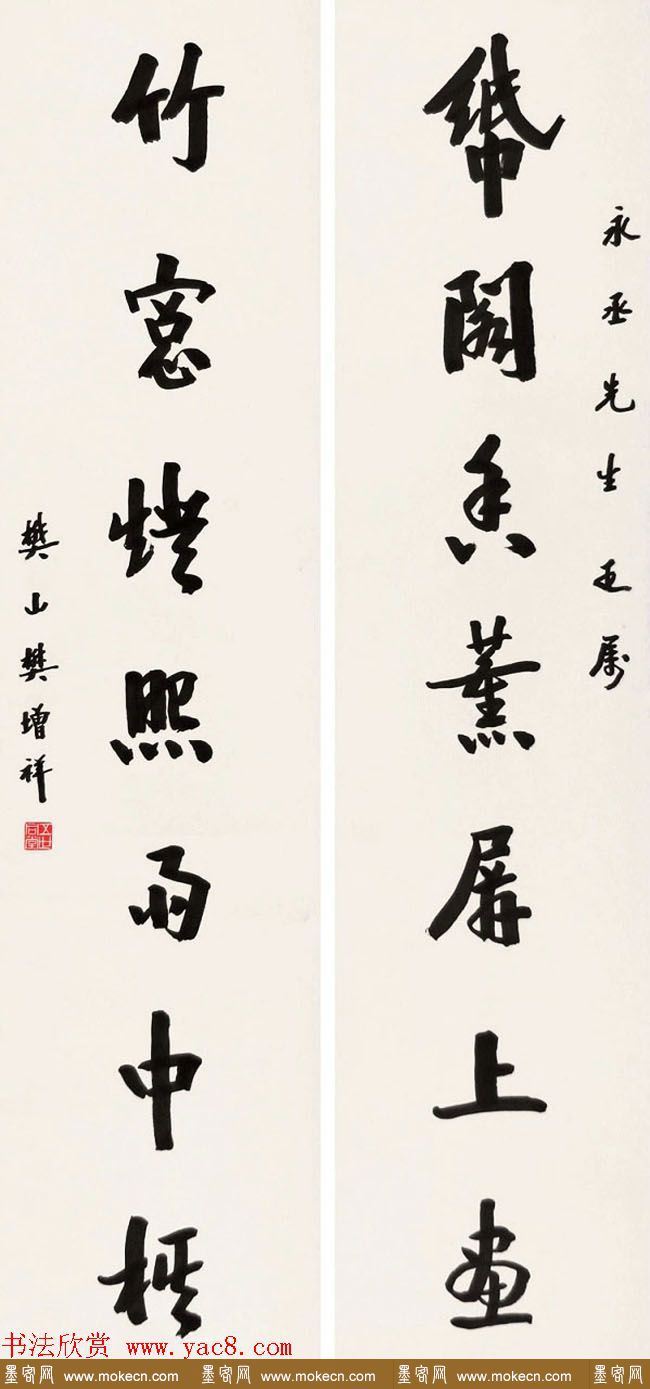 永丞先生正属
紙閣香薰屏上畫
竹窓燈照雨中棋
樊山樊增祥
书法欣赏 www.yac8.com
墨客网 www.mokecn.com 墨客网 www.mokecn.com 墨客网 www.mokecn.com